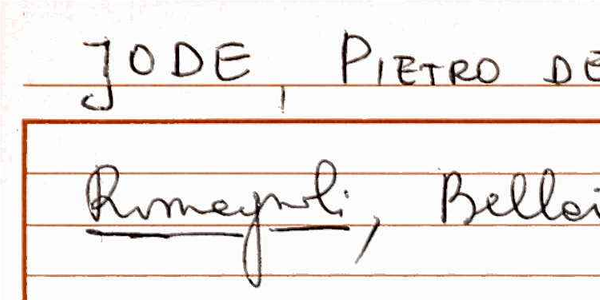 JODE, PIETRO DE
Romagnoli, Bellei